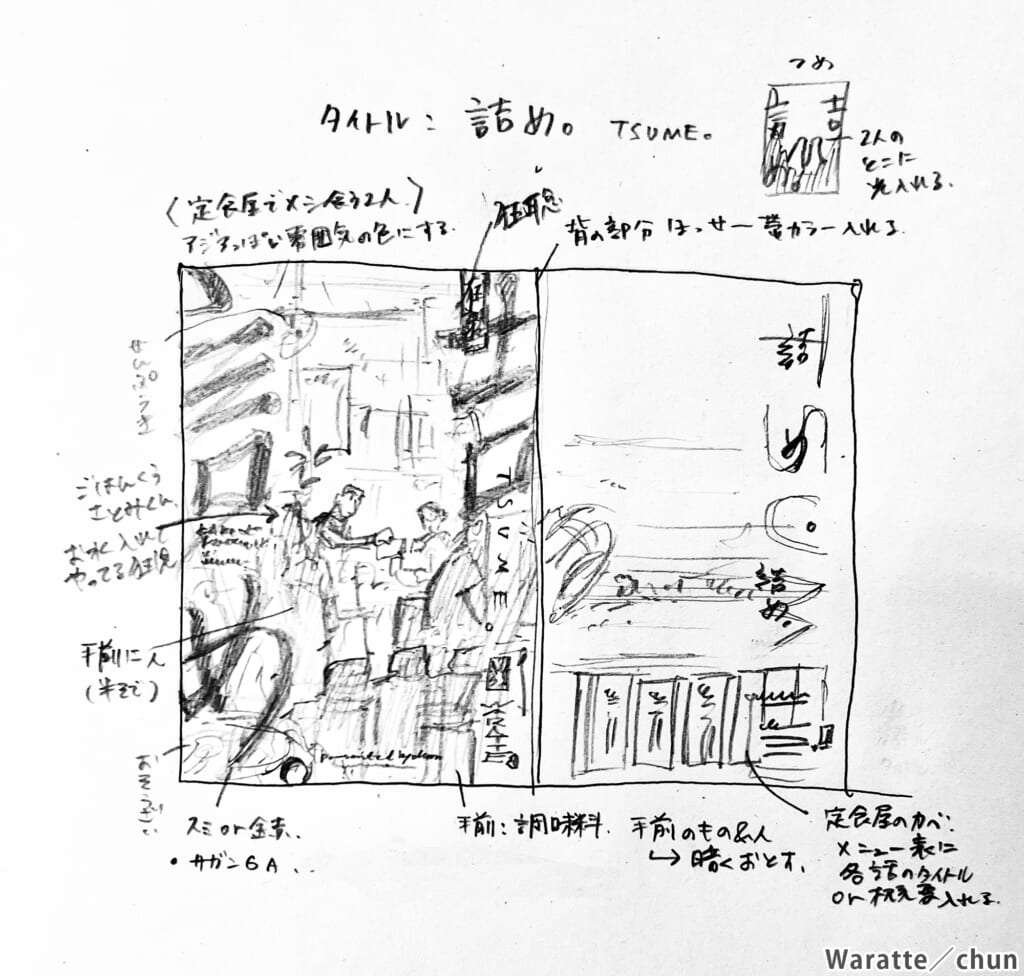 つめ
タイトル: 詰め。 TSUME。
2人の
とこに
光入れる.
〈定食屋でメシ食う2人.〉
アジアっぽい雰囲気の色にする.
狂聡
背の部分
帯カラー入れる.
せんぷうき
ごはんくう
さとみくん.
お水入れて
やってる狂児
手前に人
(半そで)
TSUME。
詰め。
詰め.
スミ or 金赤..
・サガンGA...
手前:調味料.
手前のもの&人
↳暗くおとす.
定食屋のカベ:
メニュー表に
各話のタイトル
or 概要入れる.
Waratte/chun